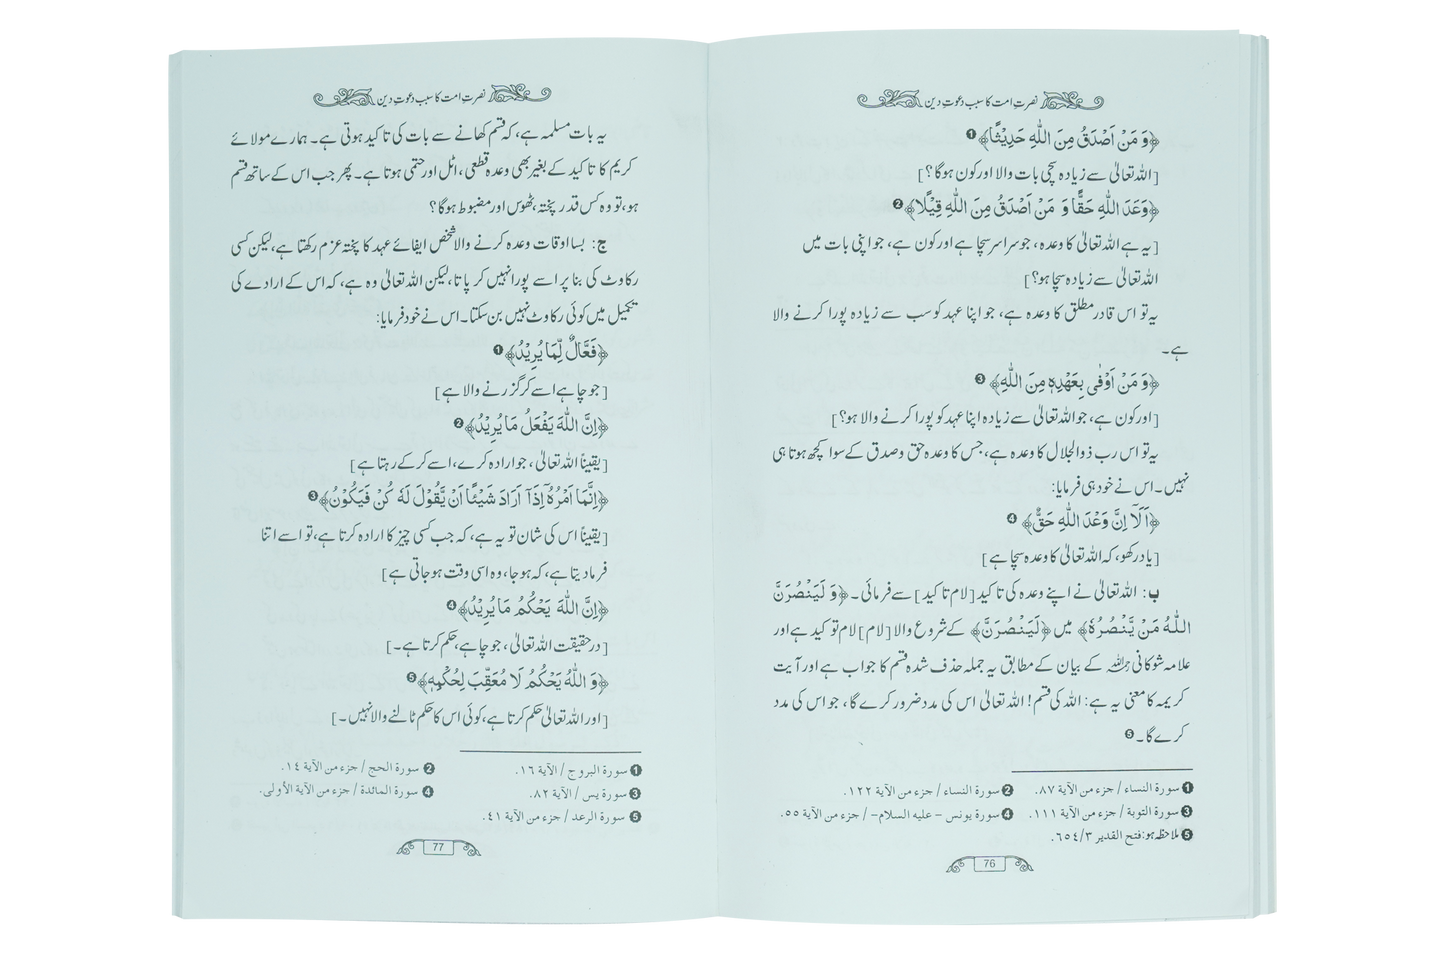 نصرتِ امت کا سبب دعوتِ دین
﴿وَ مَنْ اَصْدَقُ مِنَ اللّٰهِ حَدِيْثًا﴾ ❶
[اللہ تعالیٰ سے زیادہ سچی بات والا اور کون ہوگا؟]
﴿وَعْدَ اللّٰهِ حَقًّا وَ مَنْ اَصْدَقُ مِنَ اللّٰهِ قِيْلًا﴾ ❷
[یہ ہے اللہ تعالیٰ کا وعدہ، جو سراسر سچا ہے اور کون ہے، جو اپنی بات میں
اللہ تعالیٰ سے زیادہ سچا ہو؟]
یہ تو اس قادرِ مطلق کا وعدہ ہے، جو اپنا عہد کو سب سے زیادہ پورا کرنے والا
ہے۔
﴿وَ مَنْ اَوْفٰى بِعَهْدِهٖ مِنَ اللّٰهِ﴾ ❸
[اور کون ہے، جو اللہ تعالیٰ سے زیادہ اپنا عہد کو پورا کرنے والا ہو؟]
یہ تو اس رب ذوالجلال کا وعدہ ہے، جس کا وعدہ حق و صدق کے سوا کچھ ہوتا ہی
نہیں۔ اس نے خود ہی فرمایا:
﴿اَلَآ اِنَّ وَعْدَ اللّٰهِ حَقٌّ﴾ ❹
[یاد رکھو، کہ اللہ تعالیٰ کا وعدہ سچا ہے]
ب: اللہ تعالیٰ نے اپنے وعدہ کی تاکید [لام تاکید] سے فرمائی۔ ﴿وَ لَيَنْصُرَنَّ
اللّٰهُ مَنْ يَّنْصُرُهٗ﴾ میں ﴿لَيَنْصُرَنَّ﴾ کے شروع والا [لام] لام توکید ہے اور
علامہ شوکانی رحمہ اللہ کے بیان کے مطابق یہ جملہ حذف شدہ قسم کا جواب ہے اور آیت
کریمہ کا معنی یہ ہے: اللہ کی قسم! اللہ تعالیٰ اس کی مدد ضرور کرے گا، جو اس کی مدد
کرے گا۔ ❺
❶ سورة النساء / جزء من الآية ٨٧. ❷ سورة النساء / جزء من الآية ١٢٢.
❸ سورة التوبة / جزء من الآية ١١١. ❹ سورة يونس - عليه السلام- / جزء من الآية ٥٥.
❺ ملاحظہ ہو: فتح القدير ٦٥٤/٣.
76
نصرتِ امت کا سبب دعوتِ دین
یہ بات مسلمہ ہے، کہ قسم کھانے سے بات کی تاکید ہوتی ہے۔ ہمارے مولائے
کریم کا تاکید کے بغیر بھی وعدہ قطعی، اٹل اور حتمی ہوتا ہے۔ پھر جب اس کے ساتھ قسم
ہو، تو وہ کس قدر پختہ، ٹھوس اور مضبوط ہوگا؟
ج: بسا اوقات وعدہ کرنے والا شخص ایفائے عہد کا پختہ عزم رکھتا ہے، لیکن کسی
رکاوٹ کی بنا پر اسے پورا نہیں کر پاتا، لیکن اللہ تعالیٰ وہ ہے، کہ اس کے ارادے کی
تکمیل میں کوئی رکاوٹ نہیں بن سکتا۔ اس نے خود فرمایا:
﴿فَعَّالٌ لِّمَا يُرِيْدُ﴾ ❶
[جو چاہے اسے کر گزرنے والا ہے]
﴿اِنَّ اللّٰهَ يَفْعَلُ مَا يُرِيْدُ﴾ ❷
[یقیناً اللہ تعالیٰ، جو ارادہ کرے، اسے کر کے رہتا ہے]
﴿اِنَّمَا اَمْرُهٗٓ اِذَآ اَرَادَ شَيْئًا اَنْ يَّقُوْلَ لَهٗ كُنْ فَيَكُوْنُ﴾ ❸
[یقیناً اس کی شان تو یہ ہے، کہ جب کسی چیز کا ارادہ کرتا ہے، تو اسے اتنا
فرما دیتا ہے، کہ ہو جا، وہ اسی وقت ہو جاتی ہے]
﴿اِنَّ اللّٰهَ يَحْكُمُ مَا يُرِيْدُ﴾ ❹
[درحقیقت اللہ تعالیٰ، جو چاہے، حکم کرتا ہے۔]
﴿وَ اللّٰهُ يَحْكُمُ لَا مُعَقِّبَ لِحُكْمِهٖ﴾ ❺
[اور اللہ تعالیٰ حکم کرتا ہے، کوئی اس کا حکم ٹالنے والا نہیں۔]
❶ سورة البروج / الآية ١٦. ❷ سورة الحج / جزء من الآية ١٤.
❸ سورة يس / الآية ٨٢. ❹ سورة المائدة / جزء من الآية الأولى.
❺ سورة الرعد / جزء من الآية ٤١.
77